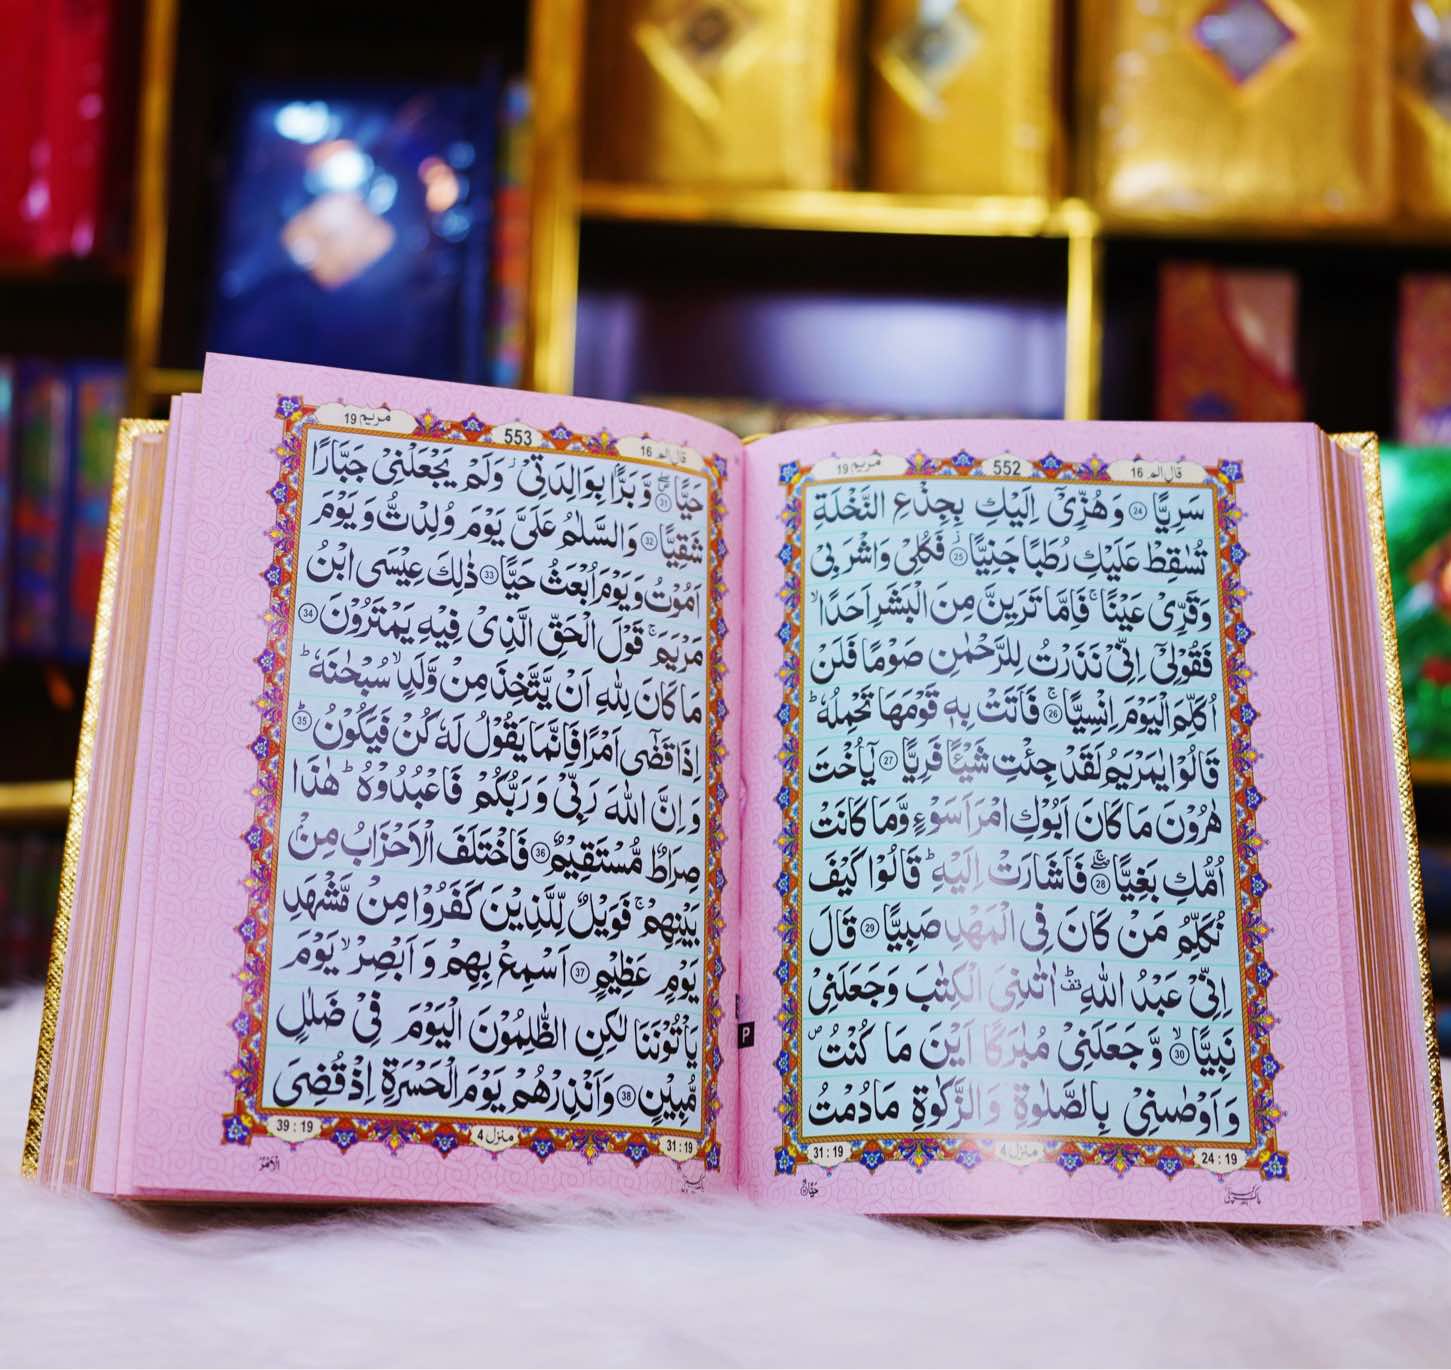 قال الم 16
552
مريم 19
سَرِيًّا ﴿24﴾ وَهُزِّىْٓ اِلَيْكِ بِجِذْعِ النَّخْلَةِ
تُسٰقِطْ عَلَيْكِ رُطَبًا جَنِيًّا ﴿25﴾ۚ فَكُلِىْ وَاشْرَبِىْ
وَقَرِّىْ عَيْنًا ۚ فَاِمَّا تَرَيِنَّ مِنَ الْبَشَرِ اَحَدًا ۙ
فَقُوْلِىْٓ اِنِّىْ نَذَرْتُ لِلرَّحْمٰنِ صَوْمًا فَلَنْ
اُكَلِّمَ الْيَوْمَ اِنْسِيًّا ﴿26﴾ۚ فَاَتَتْ بِهٖ قَوْمَهَا تَحْمِلُهٗ ؕ
قَالُوْا يٰمَرْيَمُ لَقَدْ جِئْتِ شَيْـًٔا فَرِيًّا ﴿27﴾ يٰٓاُخْتَ
هٰرُوْنَ مَا كَانَ اَبُوْكِ امْرَاَ سَوْءٍ وَّمَا كَانَتْ
اُمُّكِ بَغِيًّا ﴿28﴾ۚ فَاَشَارَتْ اِلَيْهِ ؕ قَالُوْا كَيْفَ
نُكَلِّمُ مَنْ كَانَ فِى الْمَهْدِ صَبِيًّا ﴿29﴾ قَالَ
اِنِّىْ عَبْدُ اللّٰهِ ؕ اٰتٰىنِىَ الْكِتٰبَ وَجَعَلَنِىْ
نَبِيًّا ﴿30﴾ۙ وَّجَعَلَنِىْ مُبٰرَكًا اَيْنَ مَا كُنْتُ ۪
وَاَوْصٰىنِىْ بِالصَّلٰوةِ وَالزَّكٰوةِ مَا دُمْتُ
24 : 19
منزل 4
31 : 19
قال الم 16
553
مريم 19
حَيًّا ﴿31﴾ۖ وَّبَرًّۢا بِوَالِدَتِىْ ؗ وَلَمْ يَجْعَلْنِىْ جَبَّارًا
شَقِيًّا ﴿32﴾ وَالسَّلٰمُ عَلَىَّ يَوْمَ وُلِدْتُّ وَيَوْمَ
اَمُوْتُ وَيَوْمَ اُبْعَثُ حَيًّا ﴿33﴾ ذٰلِكَ عِيْسَى ابْنُ
مَرْيَمَ ۚ قَوْلَ الْحَقِّ الَّذِىْ فِيْهِ يَمْتَرُوْنَ ﴿34﴾
مَا كَانَ لِلّٰهِ اَنْ يَّتَّخِذَ مِنْ وَّلَدٍ ۙ سُبْحٰنَهٗ ؕ
اِذَا قَضٰٓى اَمْرًا فَاِنَّمَا يَقُوْلُ لَهٗ كُنْ فَيَكُوْنُ ﴿35﴾ؕ
وَاِنَّ اللّٰهَ رَبِّىْ وَرَبُّكُمْ فَاعْبُدُوْهُ ؕ هٰذَا
صِرَاطٌ مُّسْتَقِيْمٌ ﴿36﴾ فَاخْتَلَفَ الْاَحْزَابُ مِنْۢ
بَيْنِهِمْ ۚ فَوَيْلٌ لِّلَّذِيْنَ كَفَرُوْا مِنْ مَّشْهَدِ
يَوْمٍ عَظِيْمٍ ﴿37﴾ اَسْمِعْ بِهِمْ وَاَبْصِرْ ۙ يَوْمَ
يَاْتُوْنَنَا لٰكِنِ الظّٰلِمُوْنَ الْيَوْمَ فِىْ ضَلٰلٍ
مُّبِيْنٍ ﴿38﴾ وَاَنْذِرْهُمْ يَوْمَ الْحَسْرَةِ اِذْ قُضِىَ
31 : 19
منزل 4
39 : 19
الْاَمْرُ
P